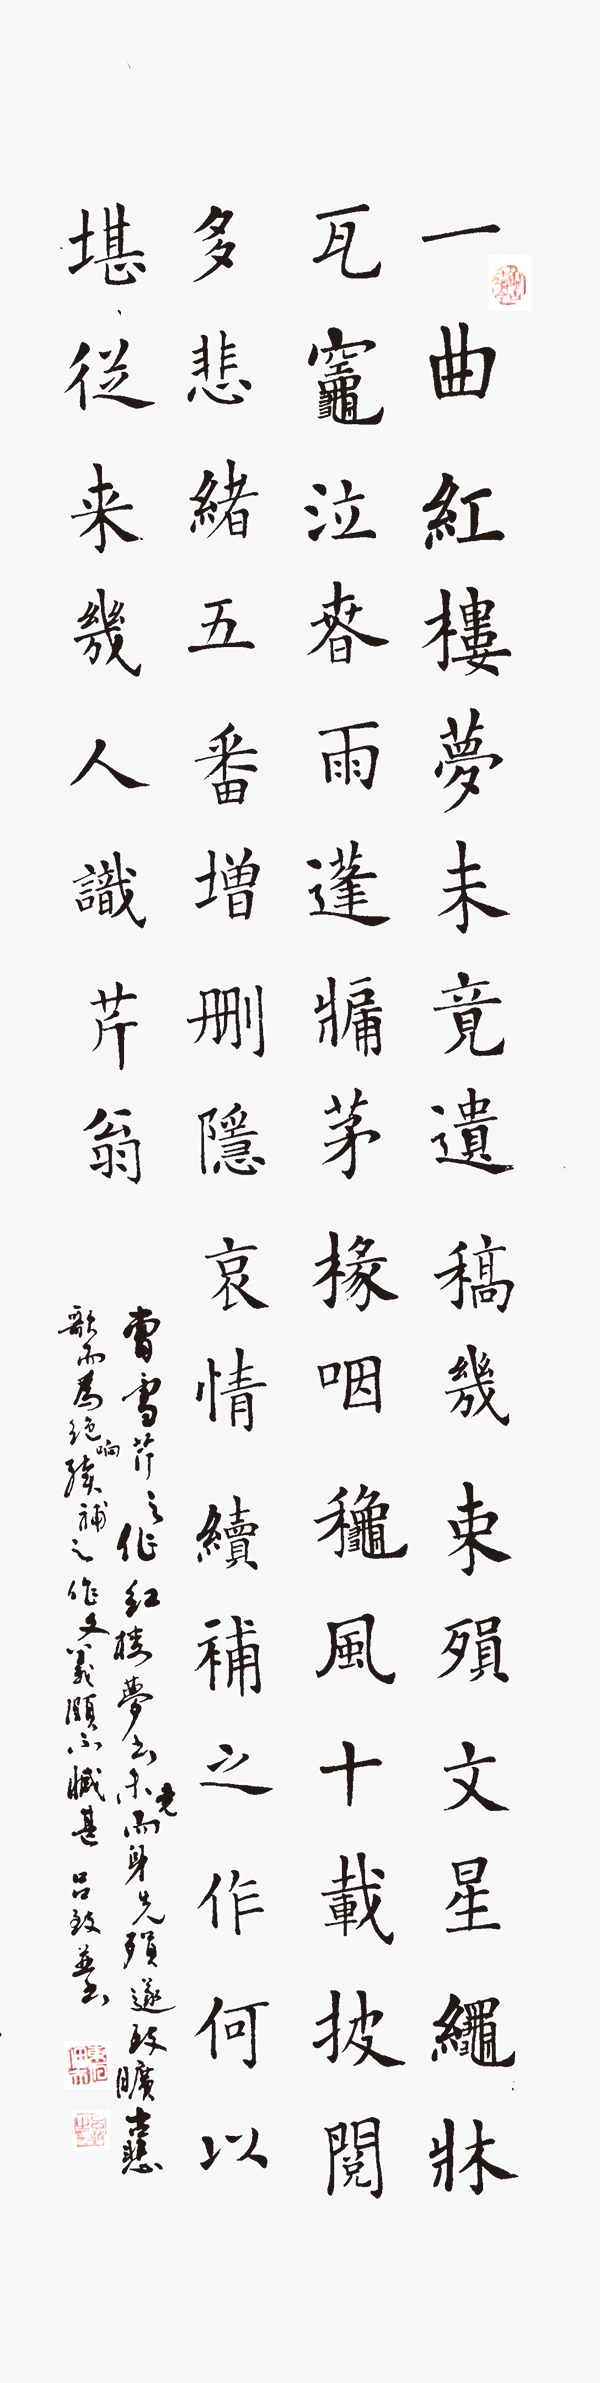 一曲紅樓夢未竟遺稿幾束殞文星繩牀
瓦竈泣春雨蓬牖茅椽咽龝風十載披閱
多悲緒五番增删隱哀情續補之作何以
堪從来幾人識芹翁
曹雪芹之作红楼夢书未竟而身先殞遂致曠古悲
歌而為绝响續補之作文義頗不臧甚 吕致並书